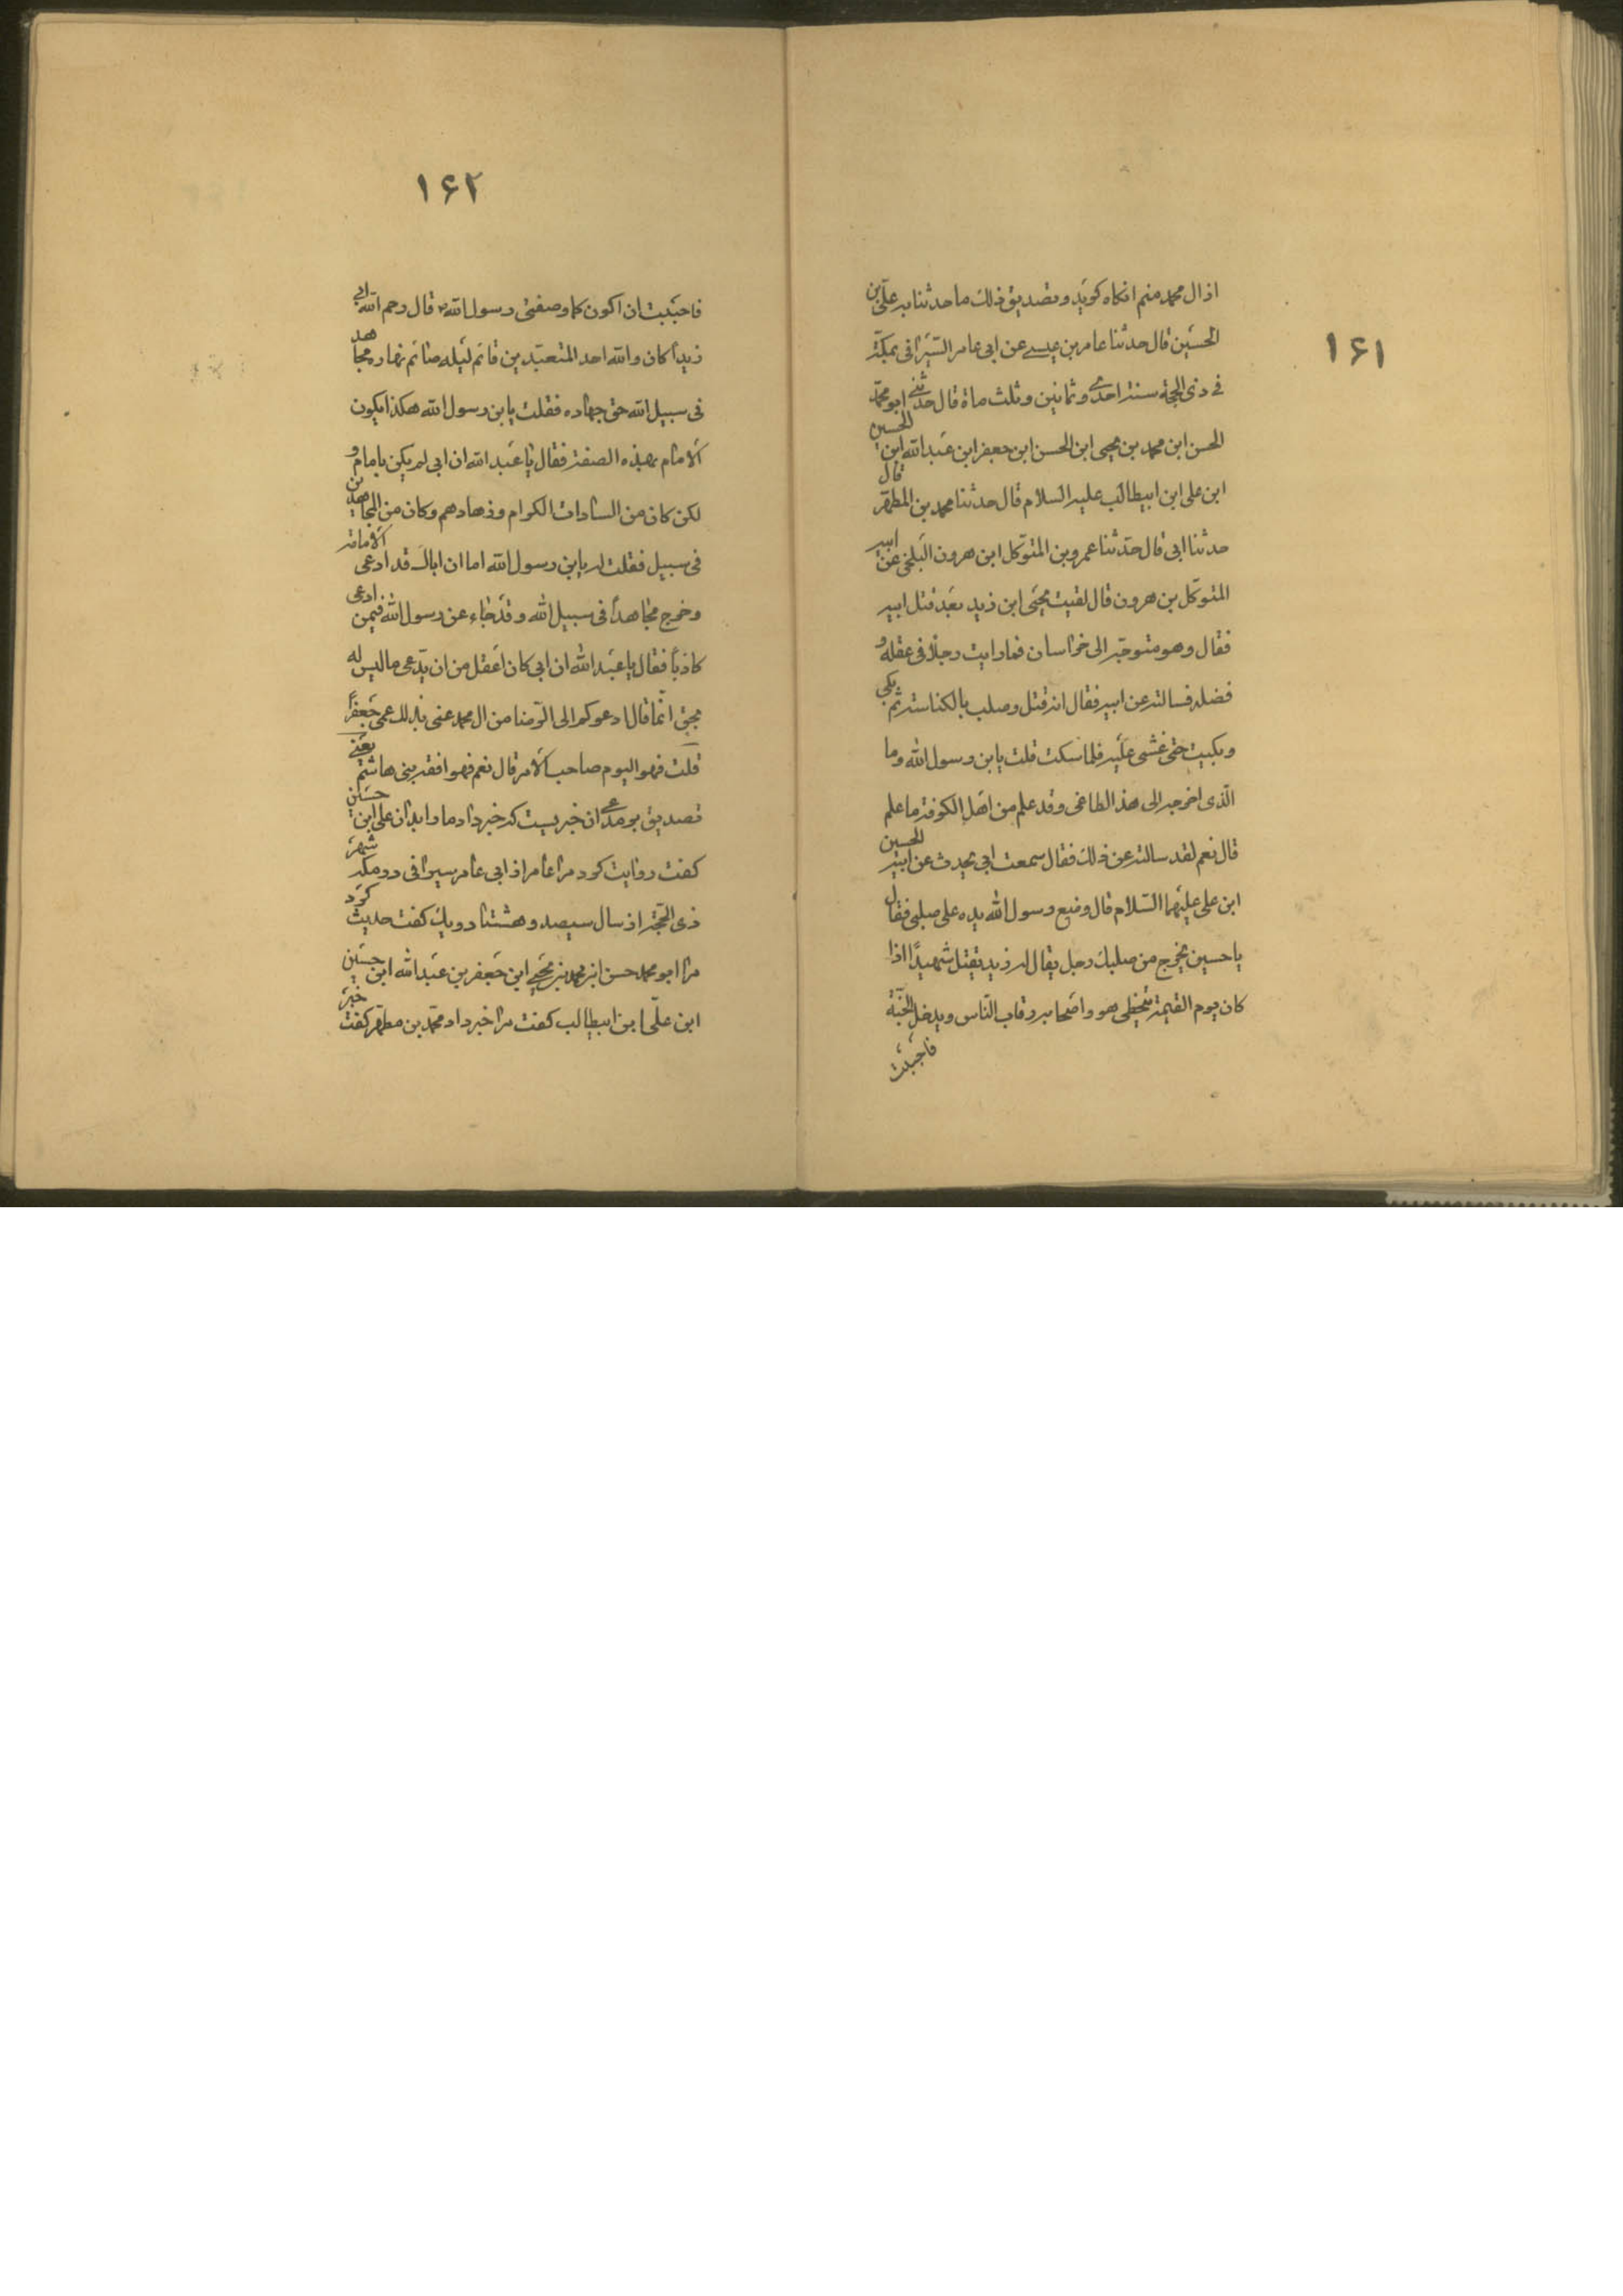 ۱۶۱
از ال محمد منم انکاه کوید و تصدیق ذلك ما حدثنا به علی بن
الحسین قال حدثنا عامر بن عیسی عن ابی عامر السیرافی بمکة
فی ذی الحجة سنة احدی و ثمانین و ثلث ماة قال حدثنی ابو محمد
الحسن ابن محمد بن یحیی ابن الحسن ابن جعفر ابن عبدالله ابن الحسین
ابن علی ابن ابیطالب علیه السلام قال حدثنا محمد بن المطهر قال
حدثنا ابی قال حدثنا عمرو بن المتوکل ابن هرون البلخی عن ابیه
المتوکل بن هرون قال لقیت یحیی ابن زید بعد قتل ابیه
فقال و هو متوجه الی خراسان فما رایت رجلا فی عقله و
فضله فسالته عن ابیه فقال انه قتل و صلب بالکناسة ثم بکی
و بکیت حتی غشی علیه فلما سکت قلت یابن رسول الله و ما
الذی اخرجه الی هذ الطاغی و قد علم من اهل الکوفة ما علم
قال نعم لقد سالته عن ذلك فقال سمعت ابی یحدث عن ابیه الحسین
ابن علی علیهما السلام قال وضع رسول الله یده علی صلبی فقال
یا حسین یخرج من صلبك رجل یقال له زید یقتل شهیدا اذا
کان یوم القیمة یتخطی هو و اصحابه رقاب الناس و یدخل الجنة
فاحببت
۱۶۲
فاحببت ان اکون کما وصفنی رسول الله ص قال رحم الله ابی
زیدا کان والله احد المتعبدین قائم لیله صائم نهاره مجاهد
فی سبیل الله حق جهاده فقلت یابن رسول الله هکذا یکون
الامام بهذه الصفة فقال یا عبدالله ان ابی لم یکن بامام و
لکن کان من السادات الکرام و زهادهم و کان من المجاهدین
فی سبیل فقلت له یابن رسول الله اما ان اباك قد ادعی الامامة
و خرج مجاهدا فی سبیل الله و قد جاء عن رسول الله فیمن ادعی
کاذبا فقال یا عبدالله ان ابی کان اعقل من ان یدعی ما لیس له
بحق انما قال ادعوکم الی الرضا من ال محمد عنی بذلك عمی جعفرا
قلت فهو الیوم صاحب الامر قال نعم فهو افقه بنی هاشم یعنی
تصدیق بر مدعی ان خبریست که خبر داد ما را بدان علی ابن حسین
کفت روایت کرد مرا عامر از ابی عامر سیرافی در مکه شهر
ذی الحجة از سال سیصد و هشتاد و یك کفت حدیث کرد
مرا ابو محمد حسن ابن محمد بن یحیی ابن جعفر بن عبدالله ابن حسین
ابن علی ابن ابیطالب کفت مرا خبر داد محمد بن مطهر کفت خبر